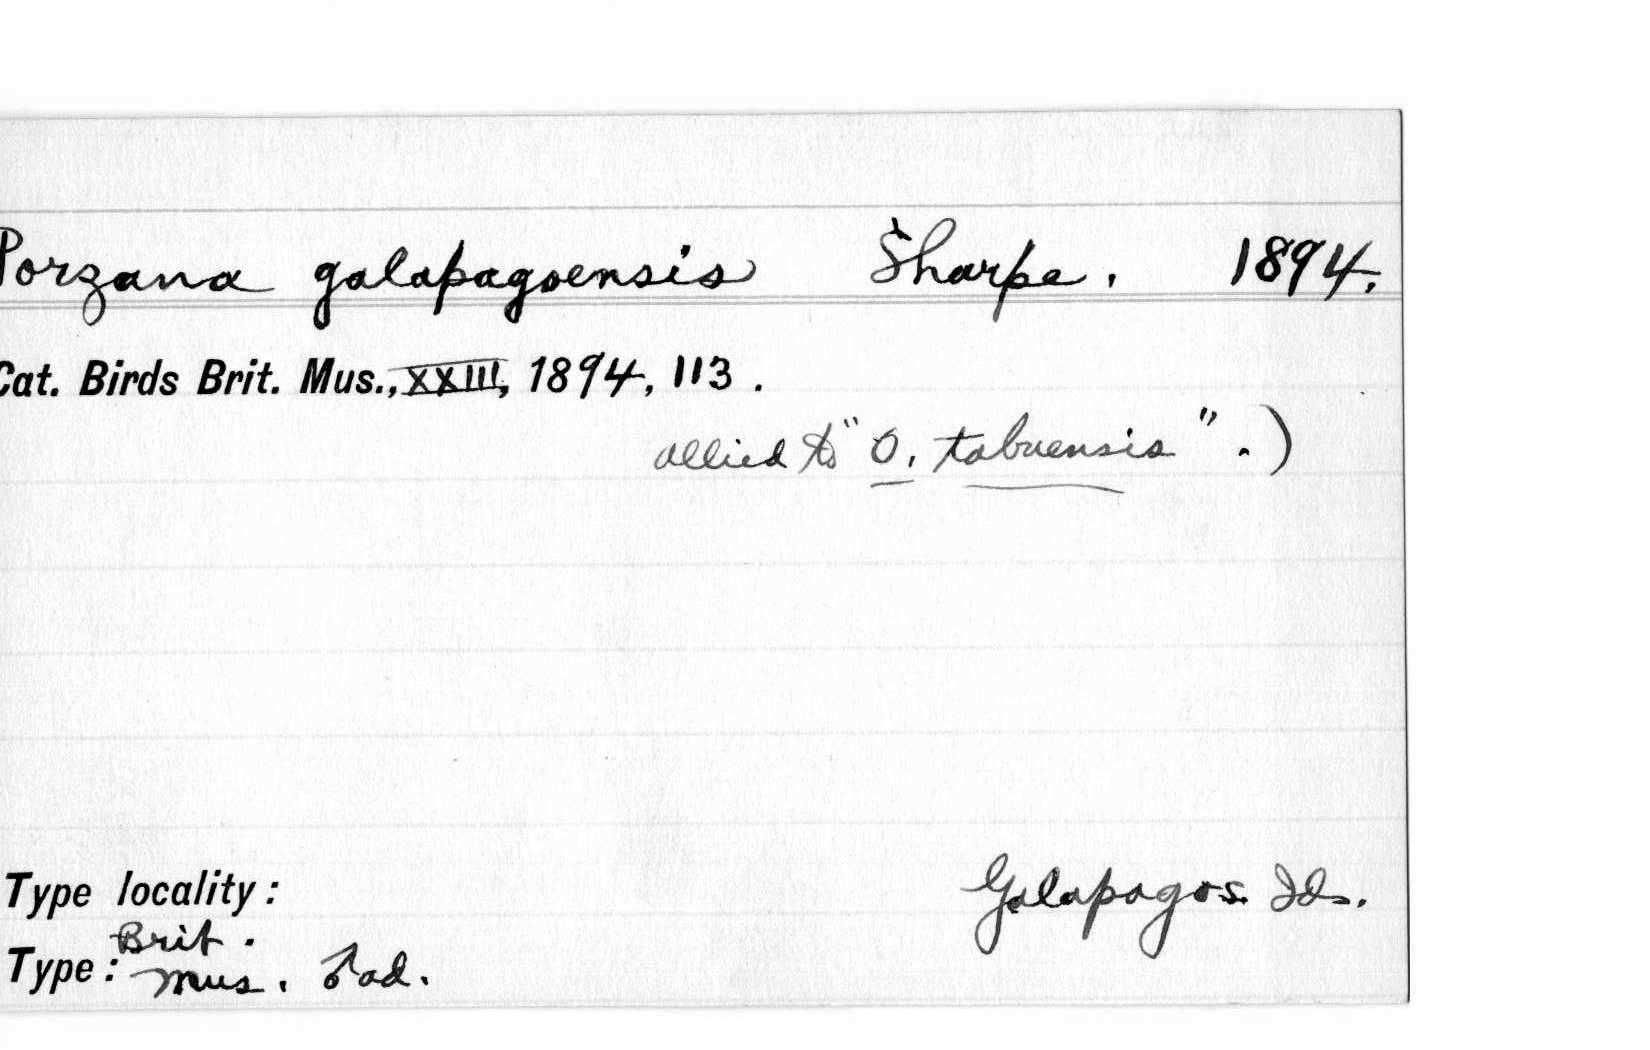 Porzana galapagoensis Sharpe. 1894.
Cat. Birds Brit. Mus., XXIII, 1894, 113.
allied to "O. tabuensis".)
Type locality: Galapagos Ids.
Brit.
Type: Mus. ♂ ad.